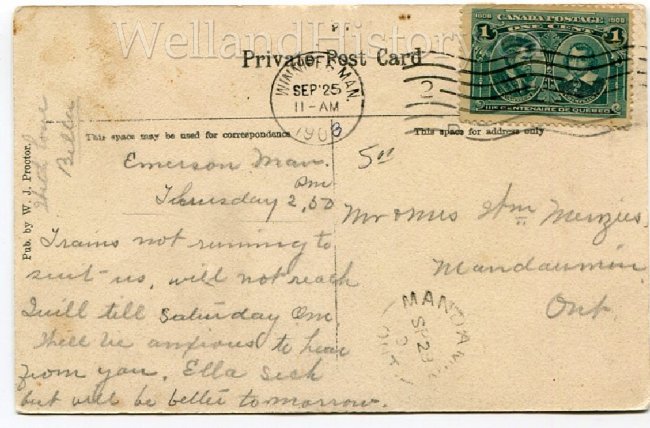 WellandHistory
Private Post Card
1608 CANADA POSTAGE 1908
1 ONE CENT 1
IIIE CENTENAIRE DE QUEBEC
WINNIPEG, MAN
SEP 25
11-AM
1908
2
This space may be used for correspondence
This space for address only
Pub. by W. J. Proctor.
love
Emerson Man.
pm
Thursday 2,50
Trains not running to
suit us, will not reach
till Saturday pm
be anxious to hear
from you. Ella sick
but will be better tomorrow.
5
Mr & Mrs Wm Menzies
Mandaumin
Ont.
MANDAMIN
SP 28
ONT